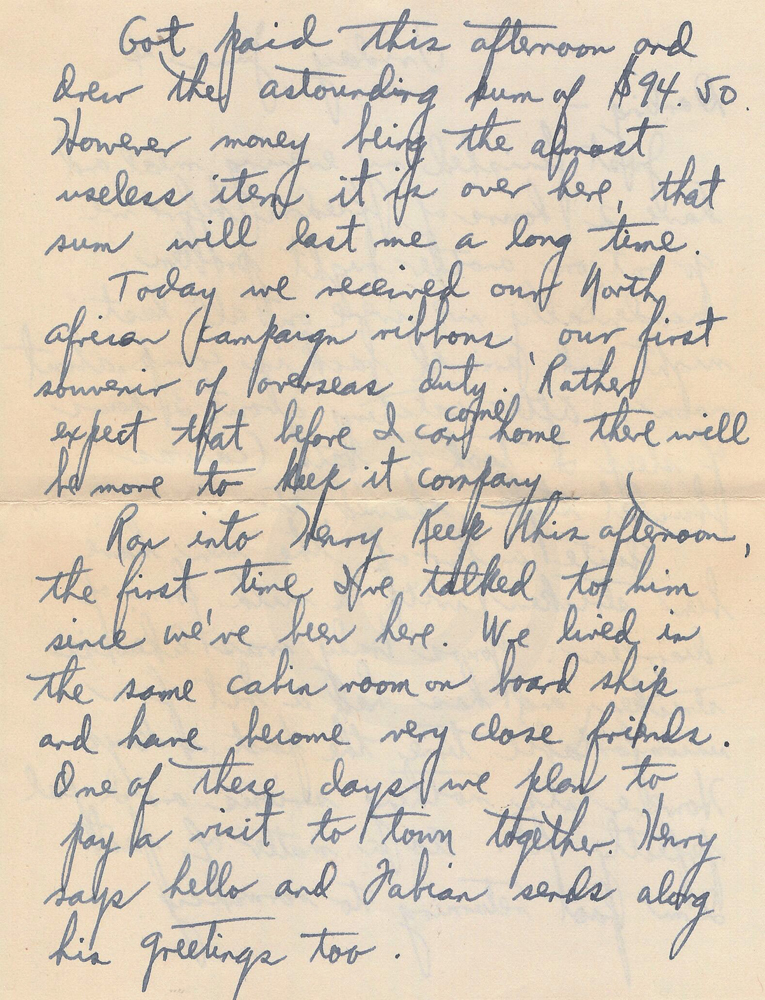 Got paid this afternoon and
drew the astounding sum of $94.50.
However money being the almost
useless item it is over here, that
sum will last me a long time.
Today we received our North
African Campaign ribbons our first
souvenir of overseas duty. Rather
expect that before I can come home there will
be more to keep it company.
Ran into Henry Keep this afternoon,
the first time I've talked to him
since we've been here. We lived in
the same cabin room on board ship
and have become very close friends.
One of these days we plan to
pay a visit to town together. Henry
says hello and Fabian sends along
his greetings too.